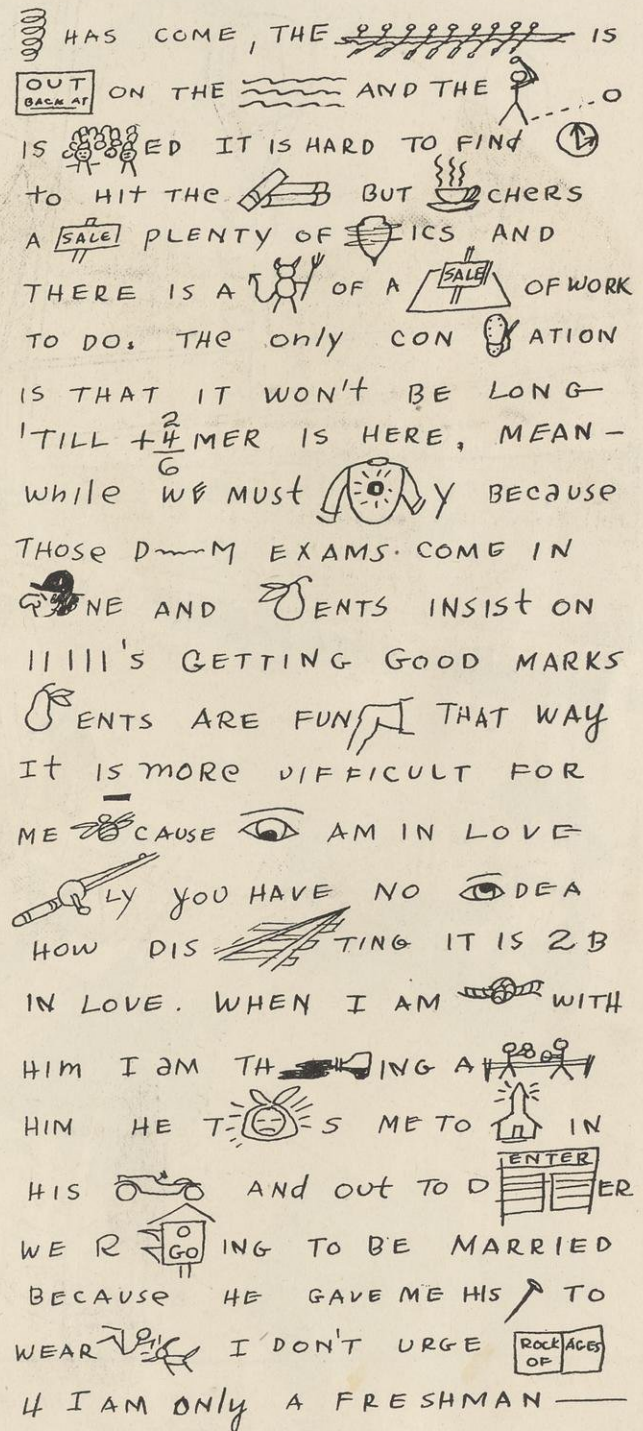 HAS COME, THE IS
OUT BACK AT ON THE AND THE
IS ED IT IS HARD TO FINd
to HIt THe BUT CHERS
A SALE PLENTY OF ICS AND
THERE IS A OF A SALE OF WORK
TO DO. THe only CON ATION
IS THAT IT WON't BE LONG
'TILL + 2 4 6 MER IS HERE, MEAN -
while WE MUSt Y BECauSe
THOSe D~~M EXAMS. COME IN
NE AND ENTS INSISt ON
11111's GETTING GOOD MARKS
ENTS ARE FUN THAT WAY
It IS moRe DIFFICULT FOR
ME CAUSE AM IN LOVE
LY yOU HAVE NO DEA
HOW DIS TING IT IS 2 B
IN LOVE. WHEN I AM WITH
HIm I am TH ING A
HIM HE T S ME TO IN
HIS ANd OUt TO D ENTER ER
WE R GO ING TO BE MARRIED
BECAUSe HE GAVE ME HIS TO
WEAR I DON'T URGE ROCK OF AGES
4 I AM ONly A FRESHMAN —